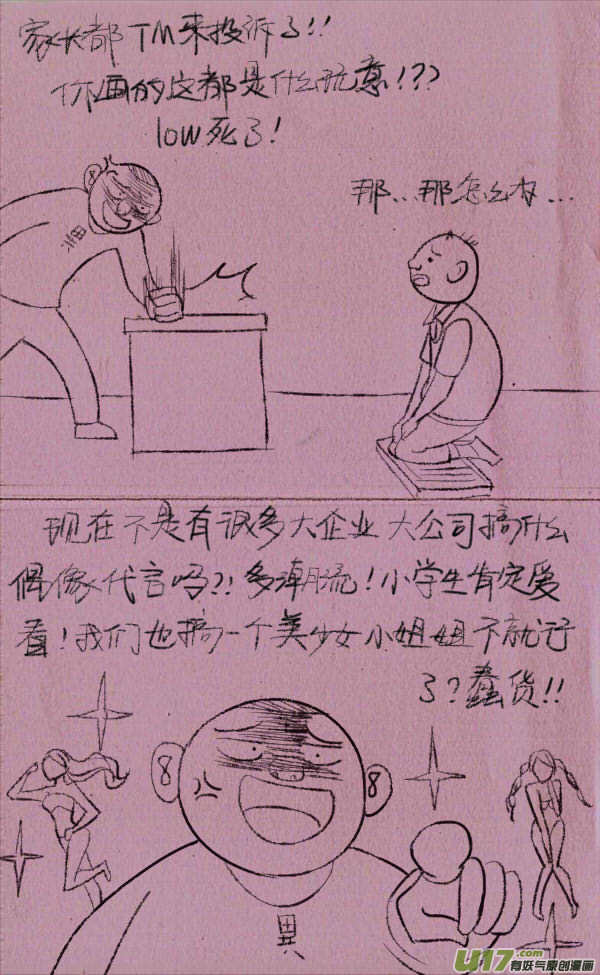 家长都TM来投诉了!!
你画的这都是什么玩意!??
low死了!
那..那怎么办...
现在不是有很多大企业大公司搞什么
偶像代言吗?!多潮流!小学生肯定爱
看!我们也搞一个美少女小姐姐不就行
了?蠢货!!
U17.com
有妖气原创漫画